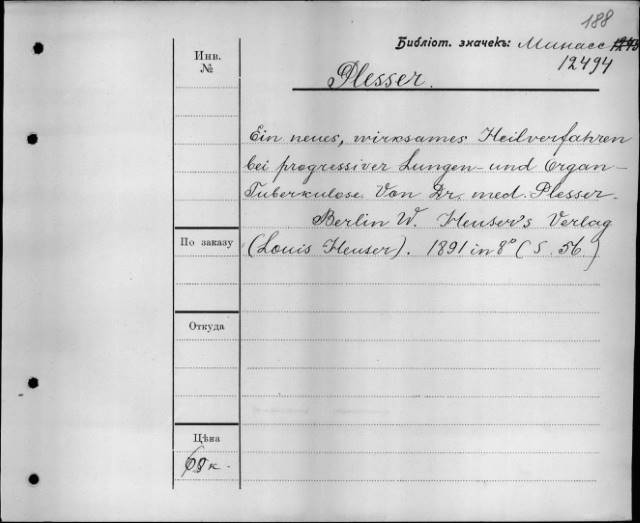 188
Инв. №
Библіот. значекъ: Минасс
12494
Plesser.
Ein neues, wirksames Heilverfahren
bei progressiver Lungen- und Organ-
Tuberkulose. Von Dr. med. Plesser.
Berlin W. Heuser's Verlag
(Louis Heuser). 1891 in 8° (S. 56.)
По заказу
Откуда
Цѣна
60 к.